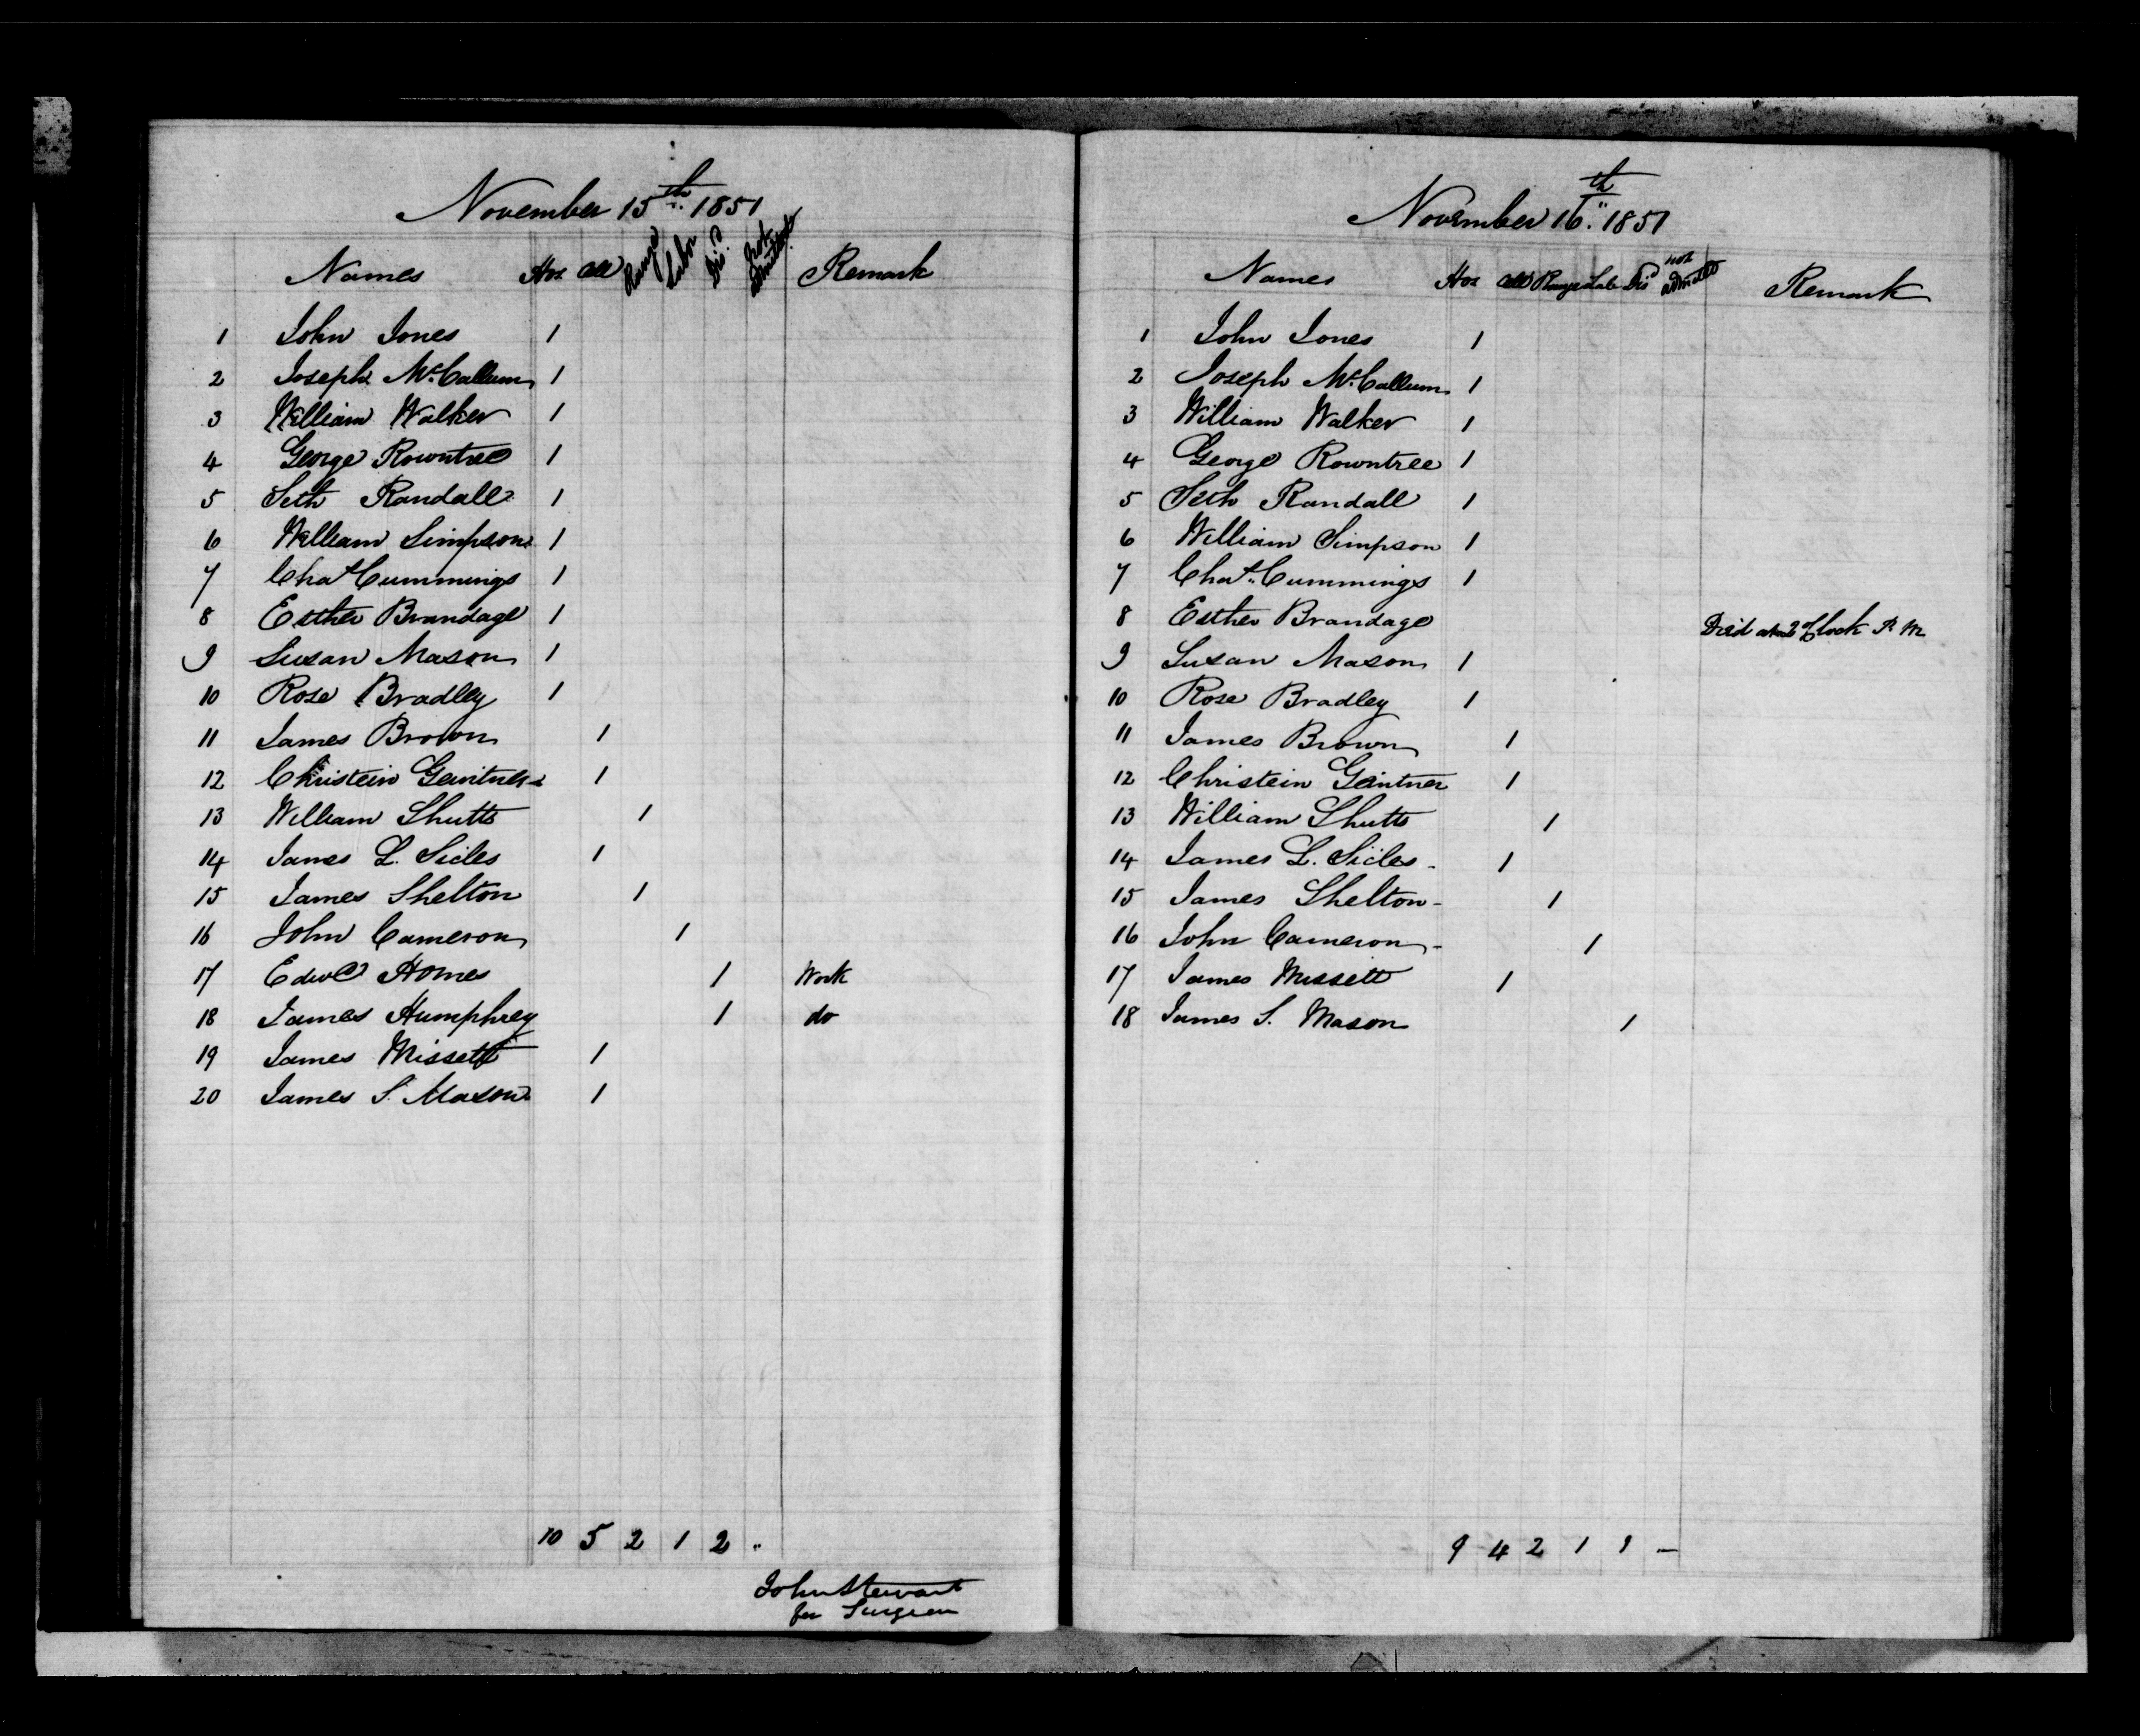 November 15th 1851
Names Hos Cell Range Labor Dis'd not admitted Remark
1 John Jones 1
2 Joseph McCallum 1
3 William Walker 1
4 George Rowntree 1
5 Seth Randall 1
6 William Simpson 1
7 Chat Cummings 1
8 Esther Brandage 1
9 Susan Mason 1
10 Rose Bradley 1
11 James Brown 1
12 Christein Geintner 1
13 William Shutts 1
14 James L. Sicles 1
15 James Shelton 1
16 John Cameron 1
17 Edwd Homes 1 Work
18 James Humphrey 1 do
19 James Missett 1
20 James S. Mason 1
10 5 2 1 2 "
John Stewart
for Surgeon
November 16th 1851
Names Hos Cell Range Lab Dis'd not admitted Remark
1 John Jones 1
2 Joseph McCallum 1
3 William Walker 1
4 George Rowntree 1
5 Seth Randall 1
6 William Simpson 1
7 Chat Cummings 1
8 Esther Brandage Died about 2 O'Clock P. M
9 Susan Mason 1
10 Rose Bradley 1
11 James Brown 1
12 Christein Geintner 1
13 William Shutts 1
14 James L. Sicles - 1
15 James Shelton - 1
16 John Cameron - 1
17 James Missett 1
18 James S. Mason 1
9 4 2 1 1 —